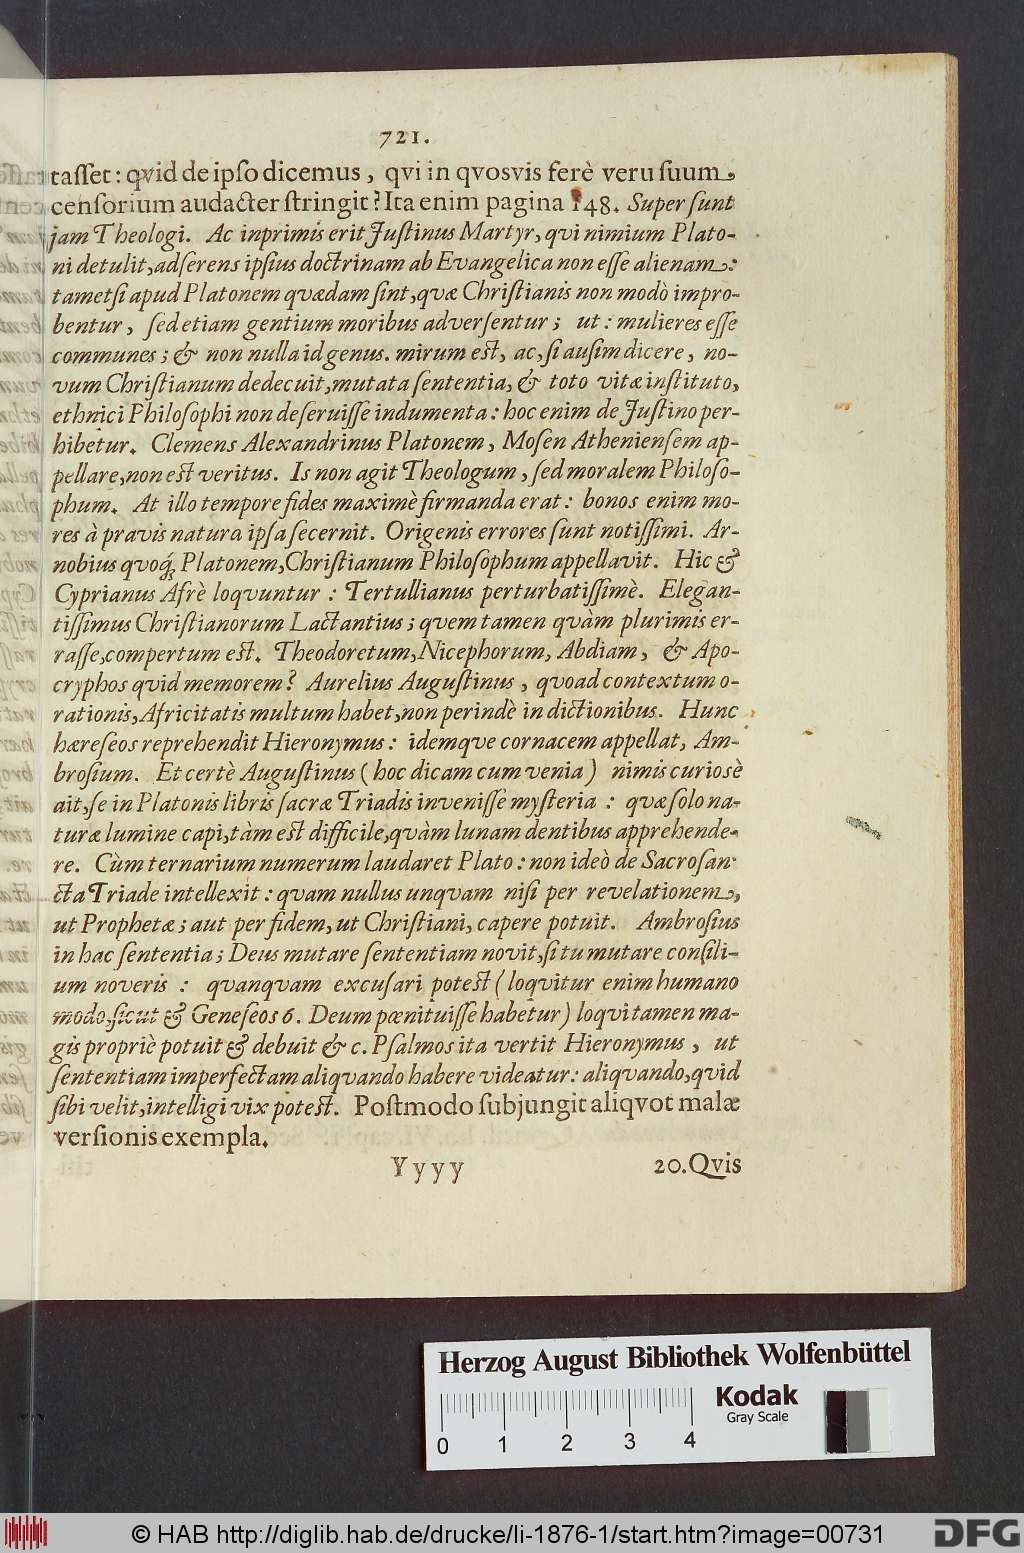 721.
taſſet: qvid de ipſo dicemus, qvi in qvosvis ferè veru ſuum
cenſorium audacter ſtringit? Ita enim pagina 148. Super ſunt
jam Theologi. Ac inprimis erit Juſtinus Martyr, qui nimium Plato-
ni detulit, adſerens ipſius doctrinam ab Evangelica non eſſe alienam:
tametſi apud Platonem quædam ſint, quæ Chriſtianis non modò impro-
bentur, ſed etiam gentium moribus adverſentur; ut: mulieres eſſe
communes; & non nulla id genus. mirum est, ac, ſi auſim dicere, no-
vum Chriſtianum dedecuit, mutata ſententia, & toto vitæ inſtituto,
ethnici Philoſophi non deſeruiſſe indumenta: hoc enim de Juſtino per-
hibetur. Clemens Alexandrinus Platonem, Moſen Athenienſem ap-
pellare, non est veritus. Is non agit Theologum, ſed moralem Philoſo-
phum. At illo tempore fides maximè firmanda erat: bonos enim mo-
res à pravis natura ipſa ſecernit. Origenis errores ſunt notiſſimi. Ar-
nobius quoq; Platonem, Chriſtianum Philoſophum appellavit. Hic &
Cyprianus Afrè loqvuntur: Tertullianus perturbatiſſimè. Elegan-
tiſſimus Chriſtianorum Lactantius; quem tamen quàm plurimis er-
raſſe, compertum est. Theodoretum, Nicephorum, Abdiam, & Apo-
cryphos quid memorem? Aurelius Auguſtinus, qvoad contextum o-
rationis, Africitatis multum habet, non perindè in dictionibus. Hunc
hæreſeos reprehendit Hieronymus: idemque cornacem appellat, Am-
broſium. Et certè Auguſtinus (hoc dicam cum venia) nimis curiosè
ait, ſe in Platonis libris ſacræ Triadis inveniſſe myſteria: quæ ſolo na-
turæ lumine capi, tàm est difficile, quàm lunam dentibus apprehende-
re. Cùm ternarium numerum laudaret Plato: non ideò de Sacroſan-
cta Triade intellexit: quam nullus unquam niſi per revelationem,
ut Prophetæ; aut per fidem, ut Chriſtiani, capere potuit. Ambroſius
in hac ſententia; Deus mutare ſententiam novit, ſi tu mutare conſili-
um noveris: quanquam excuſari poteſt (loqvitur enim humano
modo, ſicut & Geneſeos 6. Deum pœnituiſſe habetur) loqvi tamen ma-
gis propriè potuit & debuit & c. Pſalmos ita vertit Hieronymus, ut
ſententiam imperfectam aliqvando habere videatur: aliqvando, qvid
ſibi velit, intelligi vix potest. Poſtmodo ſubjungit aliqvot malæ
verſionis exempla.
Yyyy 20. Qvis
Herzog August Bibliothek Wolfenbüttel
Kodak
Gray Scale
0 1 2 3 4
© HAB http://diglib.hab.de/drucke/li-1876-1/start.htm?image=00731
DFG